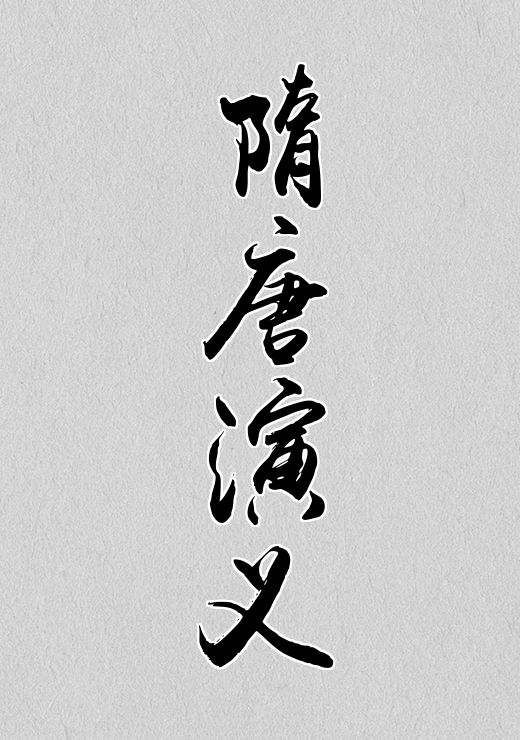 隋唐演义